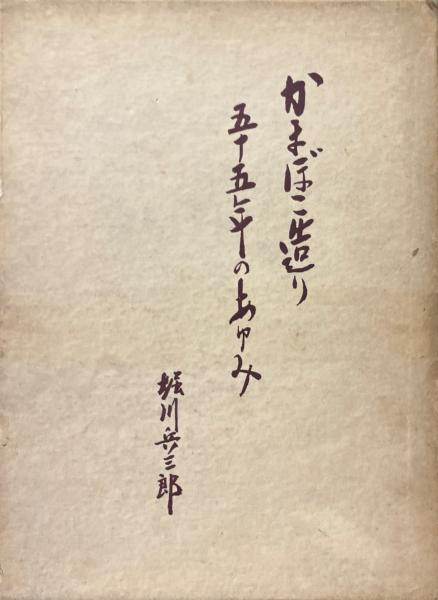 かまぼこ造り
五十五年のあゆみ
堀川兵三郎